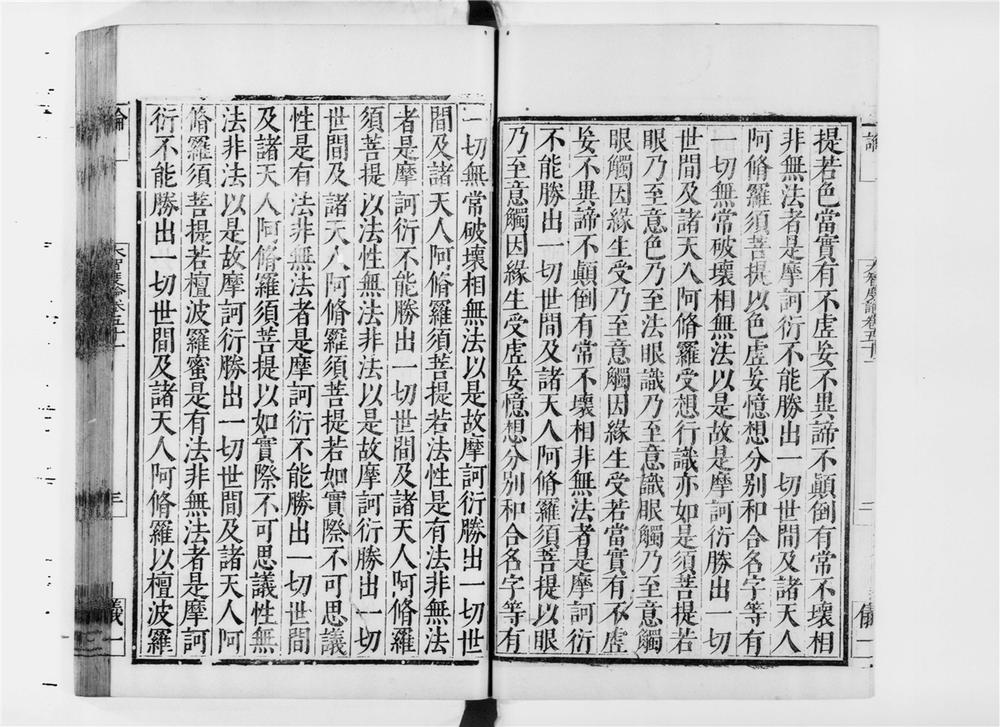 論 大智度論卷五十一 二 儀一
提若色當實有不虛妄不異諦不顛倒有常不壞相
非無法者是摩訶衍不能勝出一切世間及諸天人
阿脩羅須菩提以色虛妄憶想分別和合名字等有
一切無常破壞相無法以是故是摩訶衍勝出一切
世間及諸天人阿脩羅受想行識亦如是須菩提若
眼乃至意色乃至法眼識乃至意識眼觸乃至意觸
眼觸因緣生受乃至意觸因緣生受若當實有不虛
妄不異諦不顛倒有常不壞相非無法者是摩訶衍
不能勝出一切世間及諸天人阿脩羅須菩提以眼
乃至意觸因緣生受虛妄憶想分別和合名字等有
一切無常破壞相無法以是故摩訶衍勝出一切世
間及諸天人阿脩羅須菩提若法性是有法非無法
者是摩訶衍不能勝出一切世間及諸天人阿脩羅
須菩提以法性無法非法以是故摩訶衍勝出一切
世間及諸天人阿脩羅須菩提若如實際不可思議
性是有法非無法者是摩訶衍不能勝出一切世間
及諸天人阿脩羅須菩提以如實際不可思議性無
法非法以是故摩訶衍勝出一切世間及諸天人阿
脩羅須菩提若檀波羅蜜是有法非無法者是摩訶
衍不能勝出一切世間及諸天人阿脩羅以檀波羅
論 大智度論卷五十一 三 儀一